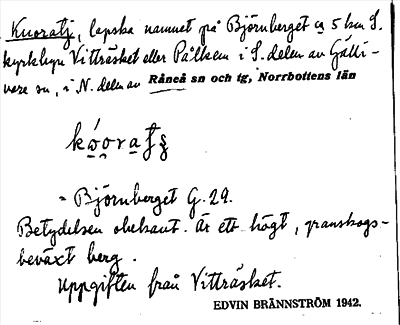 Kuoratj, lapska namnet på Björnberget ca 5 km S.
kyrkbyn Vitträsket eller Pålkem i S. delen av Gälli-
vare sn, i N. delen av Råneå sn och tg, Norrbottens län
= Björnberget G. 29.
Betydelsen obekant. Är ett högt, granskogs-
beväxt berg.
Uppgiften från Vitträsket.
EDVIN BRÄNNSTRÖM 1942.